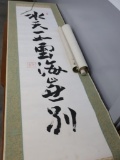 水天一雲海無別